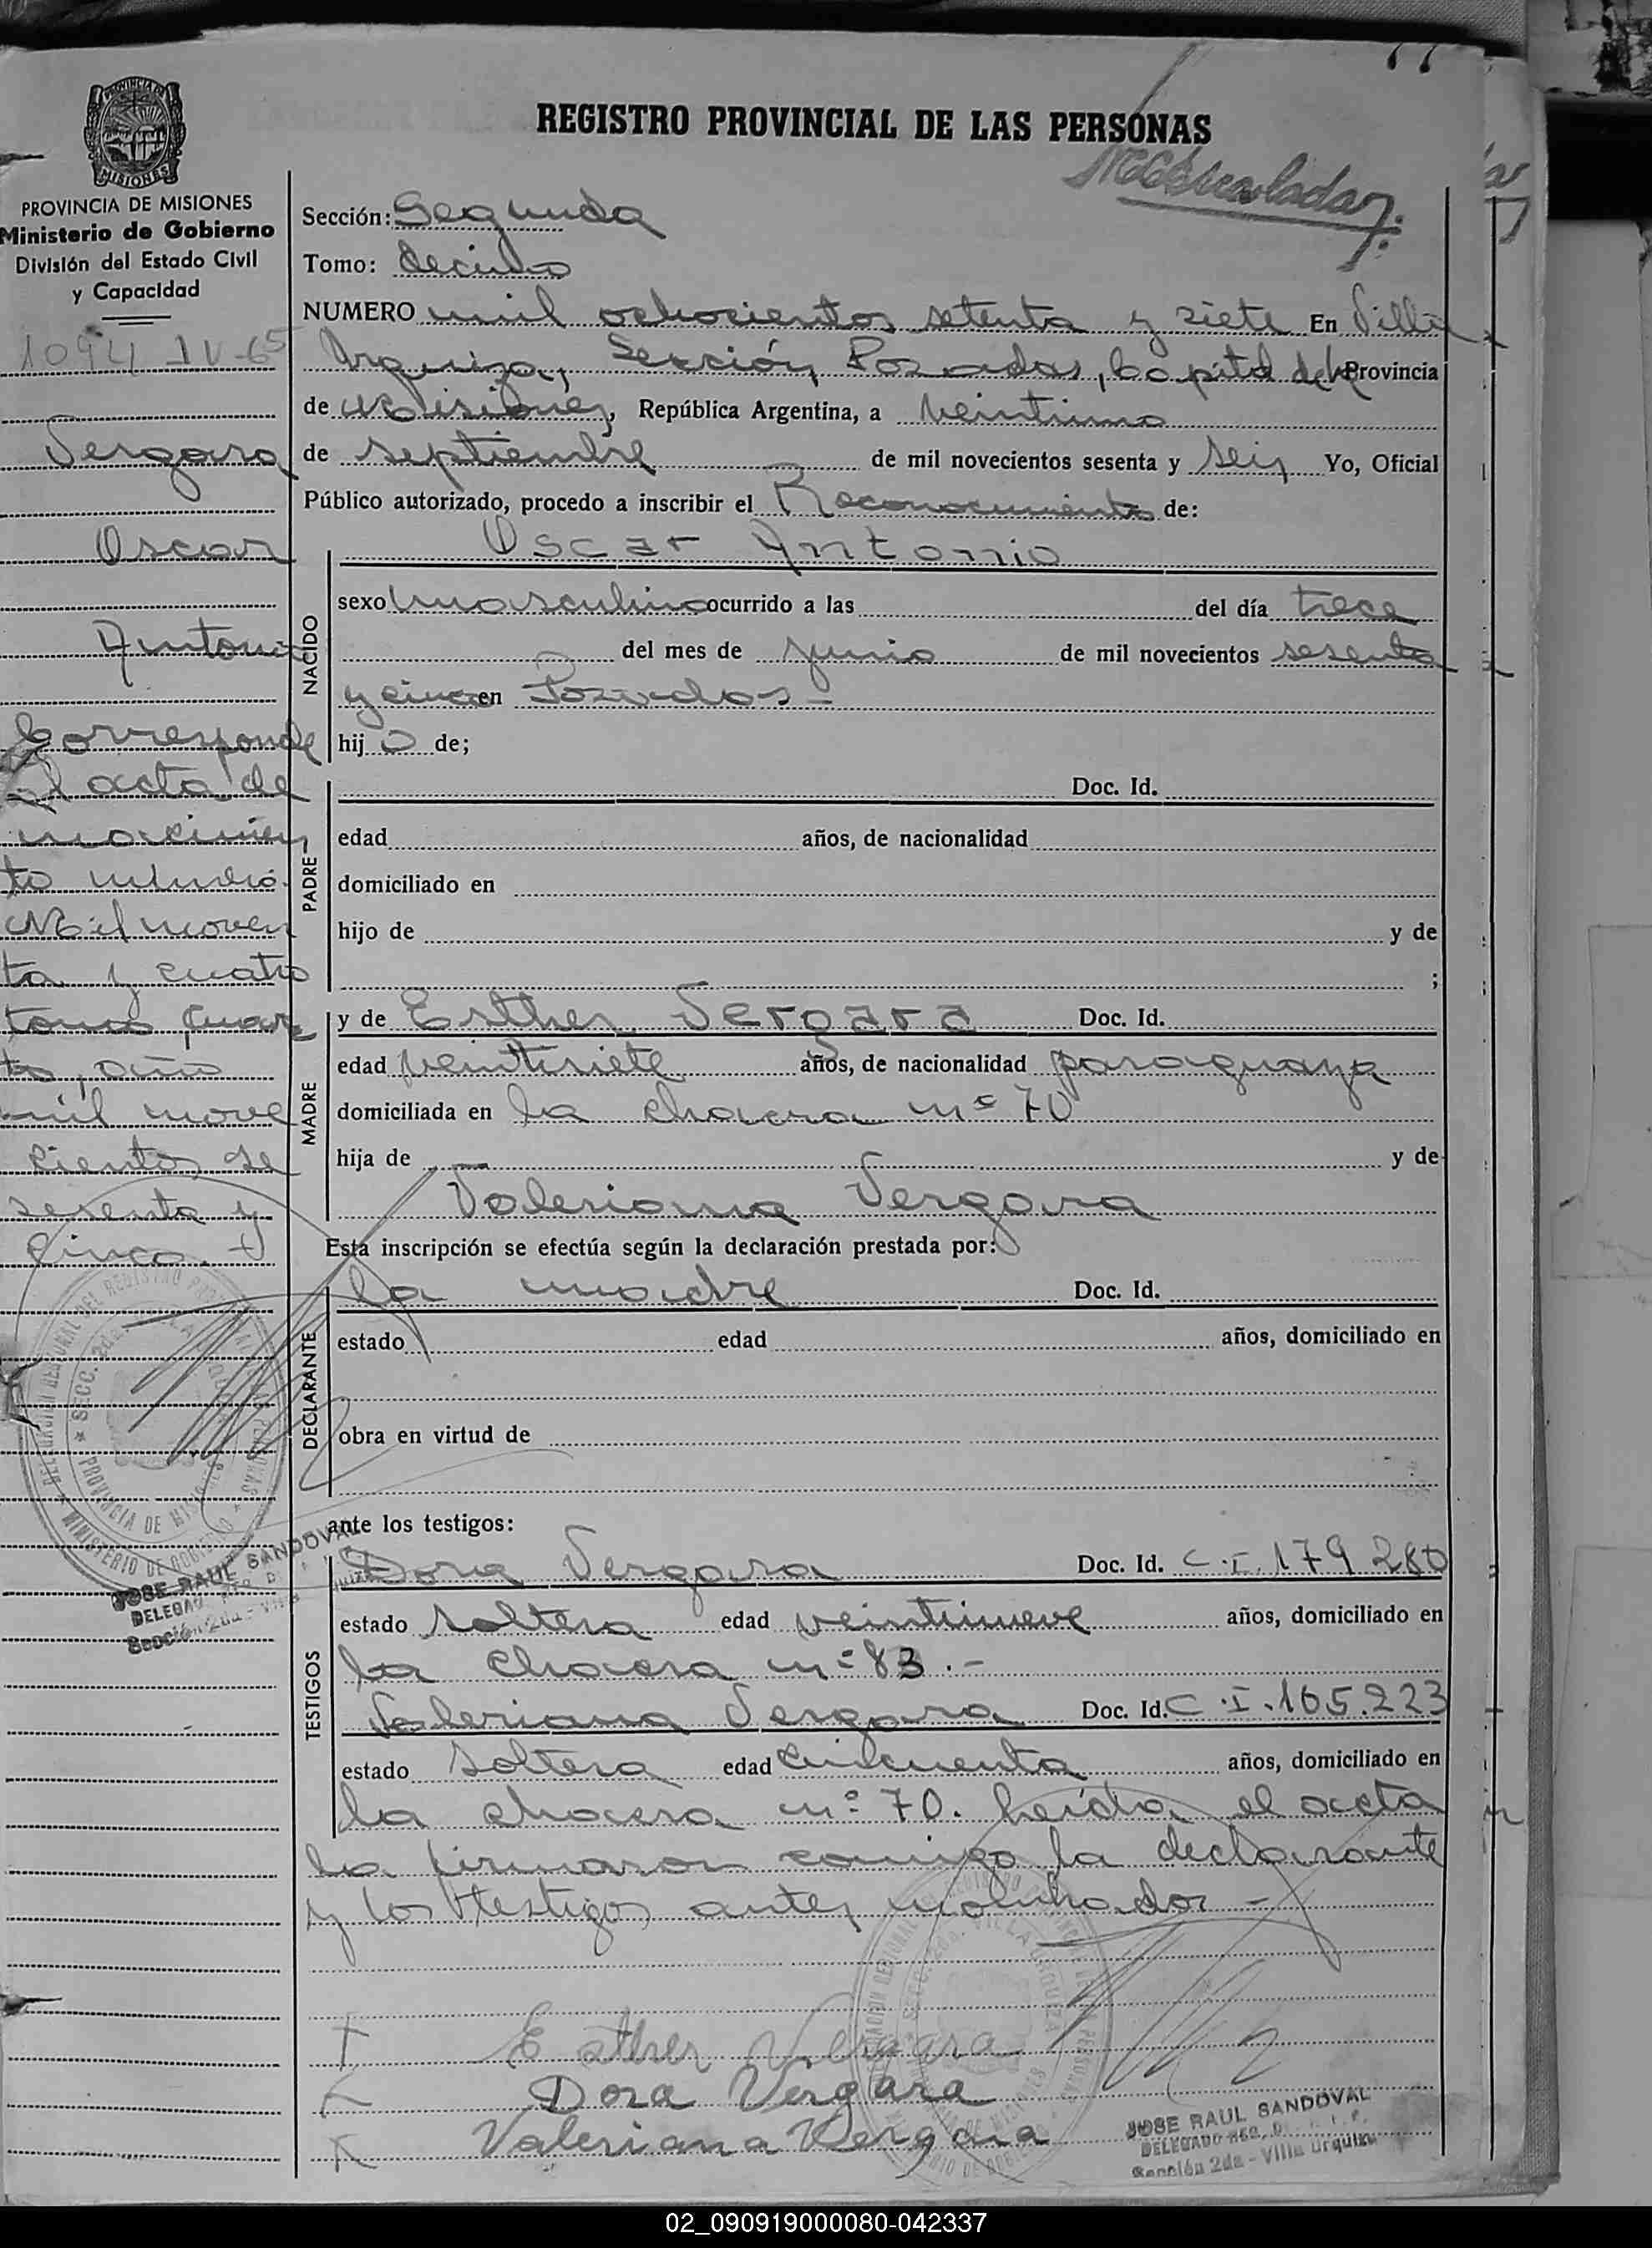 REGISTRO PROVINCIAL DE LAS PERSONAS
PROVINCIA DE MISIONES
Ministerio de Gobierno
División del Estado Civil
y Capacidad
1094 IV-65
Vergara
Oscar
Antonio
Corresponde
al acta de
nacimien
to número
Mil noven
ta y cuatro
tomo cuar
to, año
mil nove
cientos se
sesenta y
cinco.
Sección: Segunda
Tomo: decimo
NUMERO mil ochocientos setenta y siete En Villa
Urquiza, Sección Posadas, Capital de la Provincia
de Misiones, República Argentina, a veintiuno
de septiembre de mil novecientos sesenta y seis Yo, Oficial
Público autorizado, procedo a inscribir el Reconocimiento de:
NACIDO
Oscar Antonio
sexo masculino ocurrido a las del día trece
del mes de junio de mil novecientos sesenta
y cinco en Posadas -
hijo de;
PADRE
Doc. Id.
edad años, de nacionalidad
domiciliado en
hijo de y de
;
MADRE
y de Esther Vergara Doc. Id.
edad veintisiete años, de nacionalidad paraguaya
domiciliada en la chacra nº 70
hija de y de
Valeriana Vergara
Esta inscripción se efectúa según la declaración prestada por:
DECLARANTE
la madre Doc. Id.
estado edad años, domiciliado en
obra en virtud de
ante los testigos:
TESTIGOS
Dora Vergara Doc. Id. C.I. 179.280
estado soltera edad veintinueve años, domiciliado en
la chacra nº 83.-
Valeriana Vergara Doc. Id. C.I. 165.223
estado soltera edad cincuenta años, domiciliado en
la chacra nº 70. Leída el acta
la firmaron conmigo la declarante
y los testigos antes nombrados -
Esther Vergara
Dora Vergara
Valeriana Vergara
JOSE RAUL SANDOVAL
DELEGADO
Sección 2da - Villa Urquiza
JOSE RAUL SANDOVAL
DELEGADO REG.
Sección 2da - Villa Urquiza
02_090919000080-042337